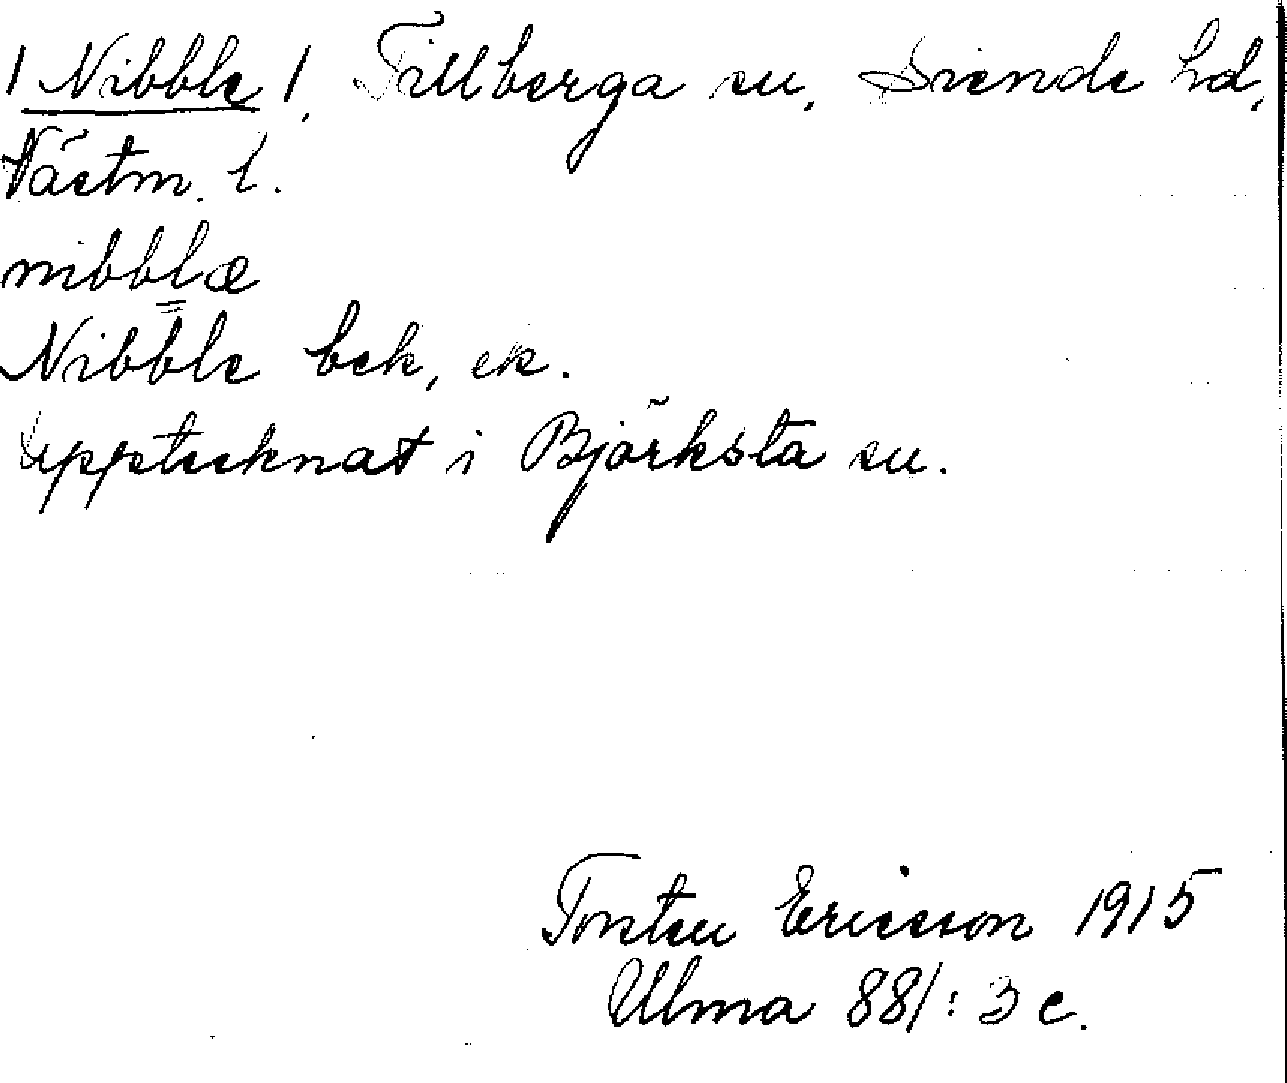 / Nibble /, Tillberga sn, Siende hd,
Västm. l.
nibblæ
Nibble bek, ek.
Upptecknat i Björksta sn.
Torsten Ericsson 1915
Ulma 88/: 3 c.